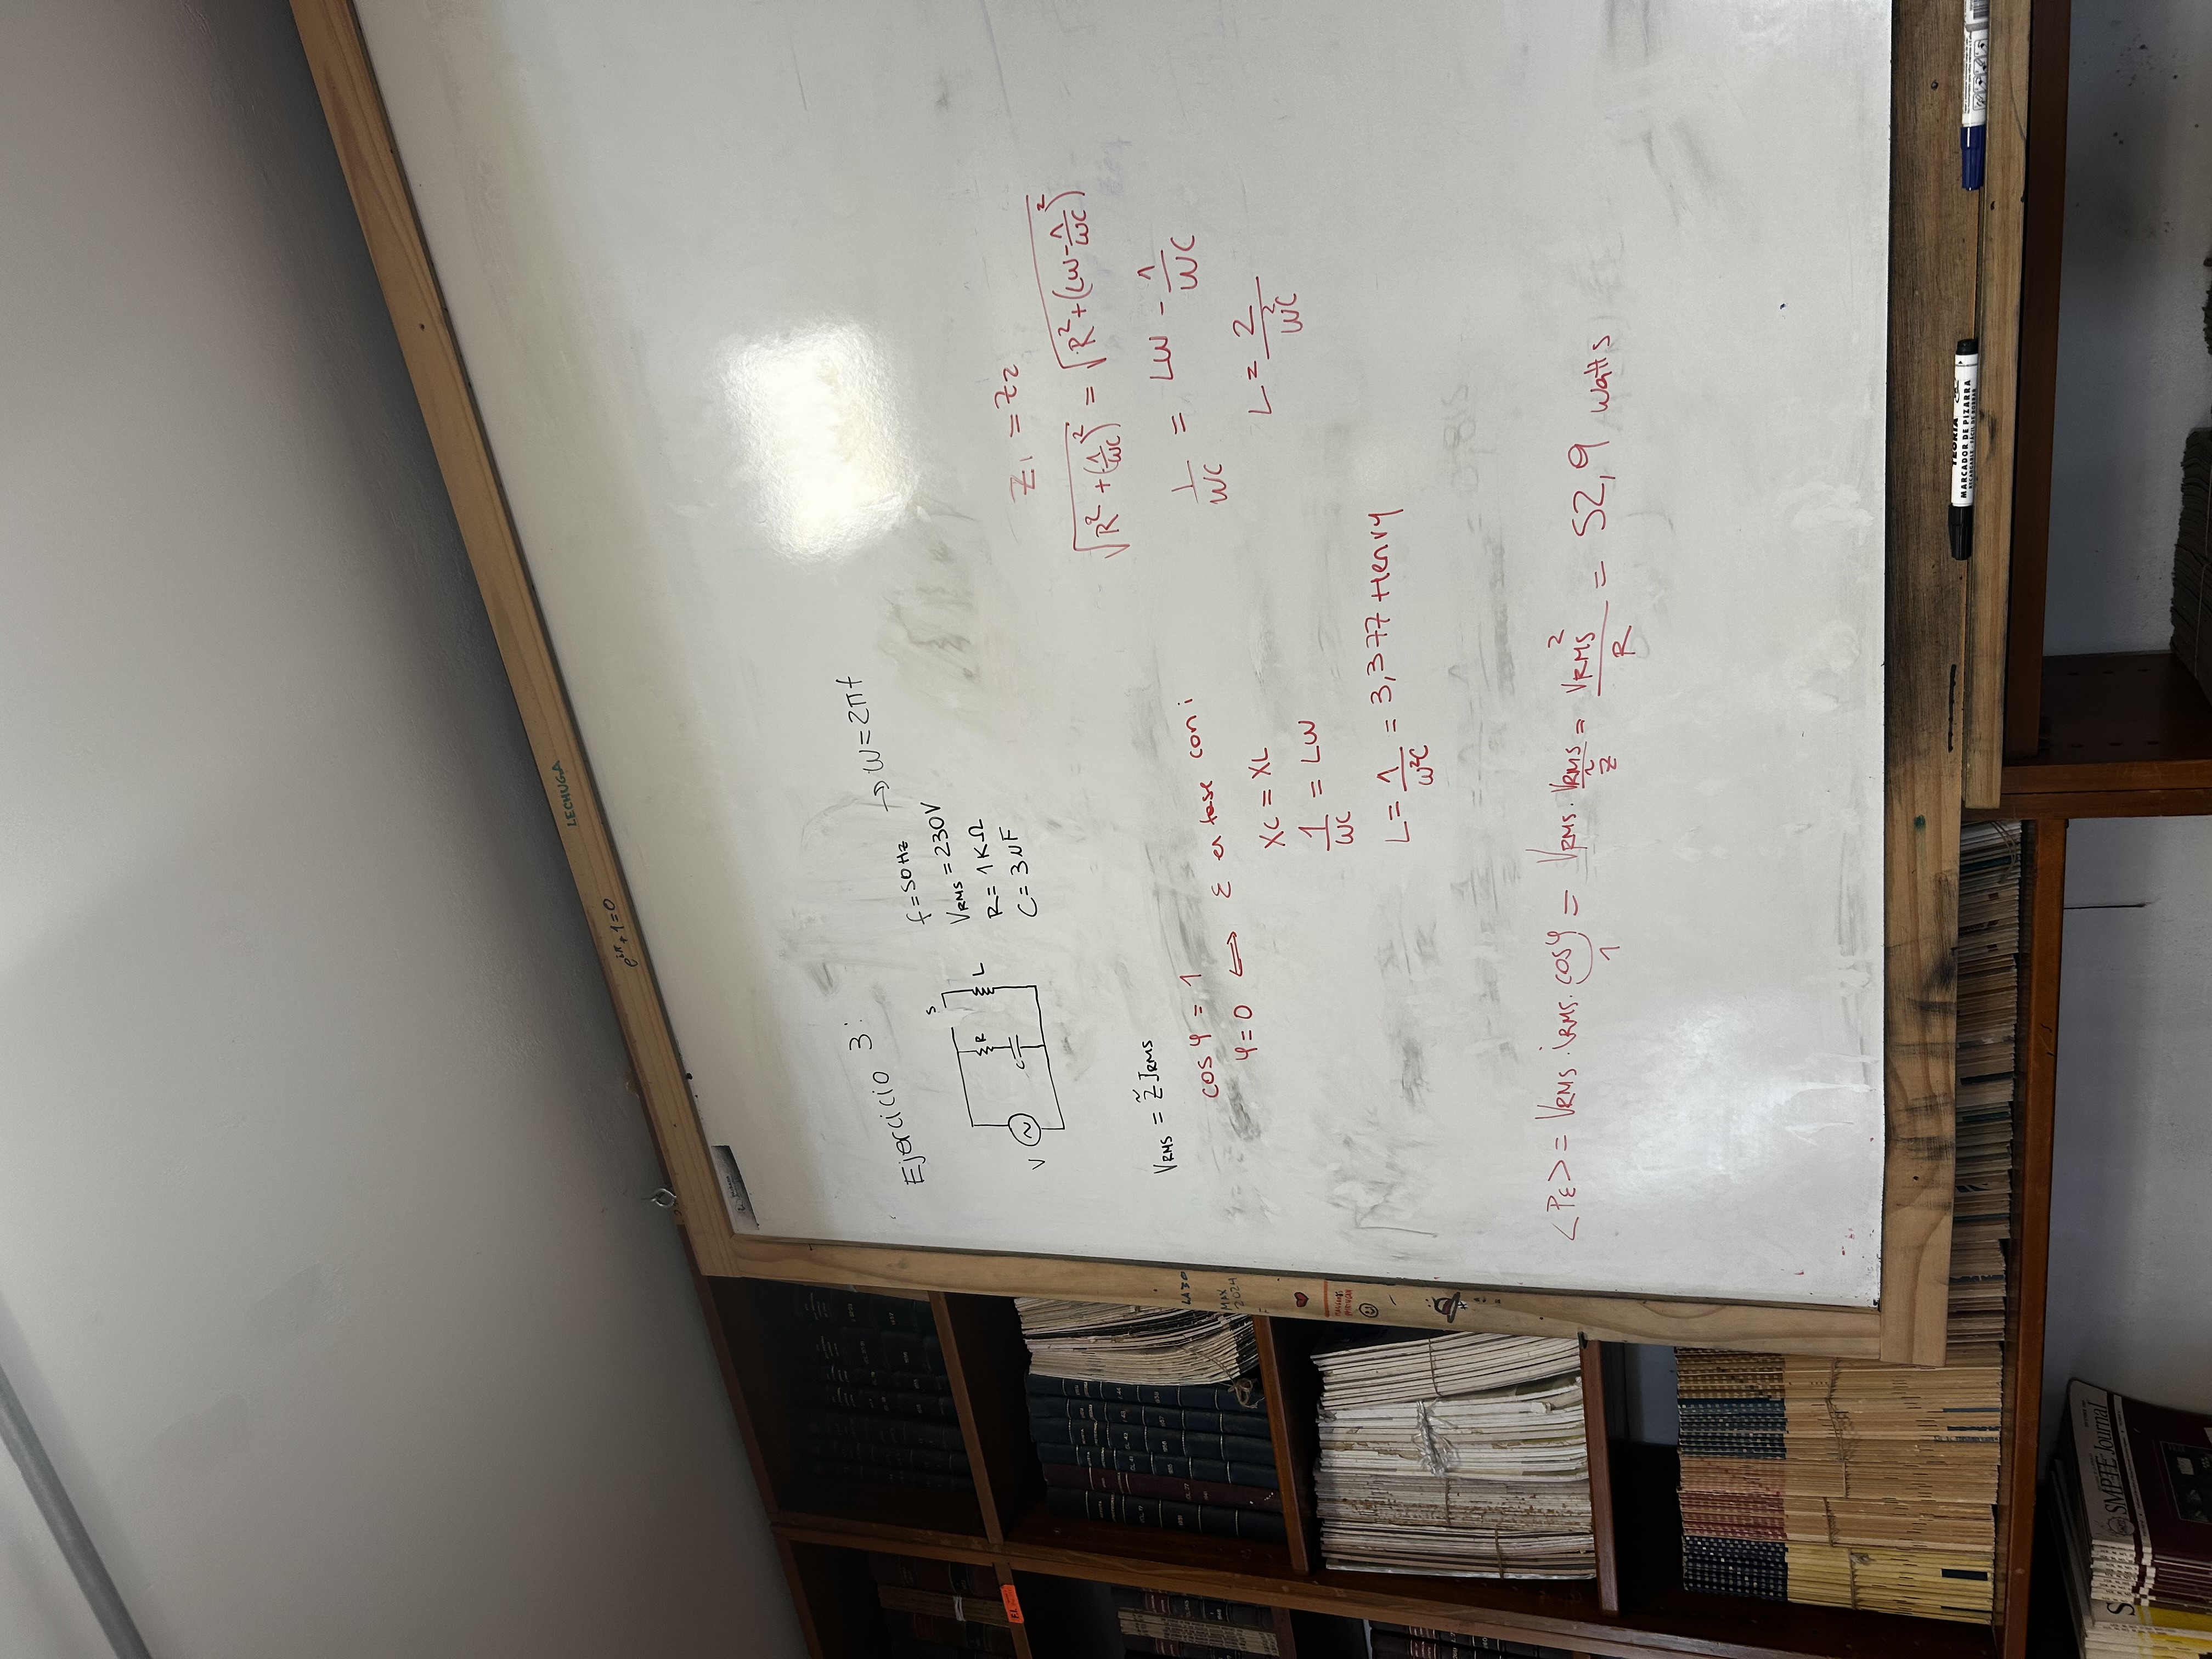 LECHUGA
e^iπ + 1 = 0
Ejercicio 3:
f = 50 Hz → ω = 2πf
V_RMS = 230V
R = 1KΩ
C = 3μF
V
S
R
C
L
V_RMS = Z̃ I_RMS
cos φ = 1
φ = 0 ⟺ ε en fase con i
XC = XL
1/ωC = Lω
L = 1/ω²C = 3,377 Henry
Z1 = Z2
√(R² + (1/ωC)²) = √(R² + (Lω - 1/ωC)²)
1/ωC = Lω - 1/ωC
L = 2/ω²C
<Pε> = V_RMS . i_RMS . cosφ = V_RMS . V_RMS/Z̃ = V_RMS²/R = 52,9 watts
1
LA 30
MAX
2024
TEORIA
MARCADOR DE PIZARRA
SMPTE Journal
S
F.I.